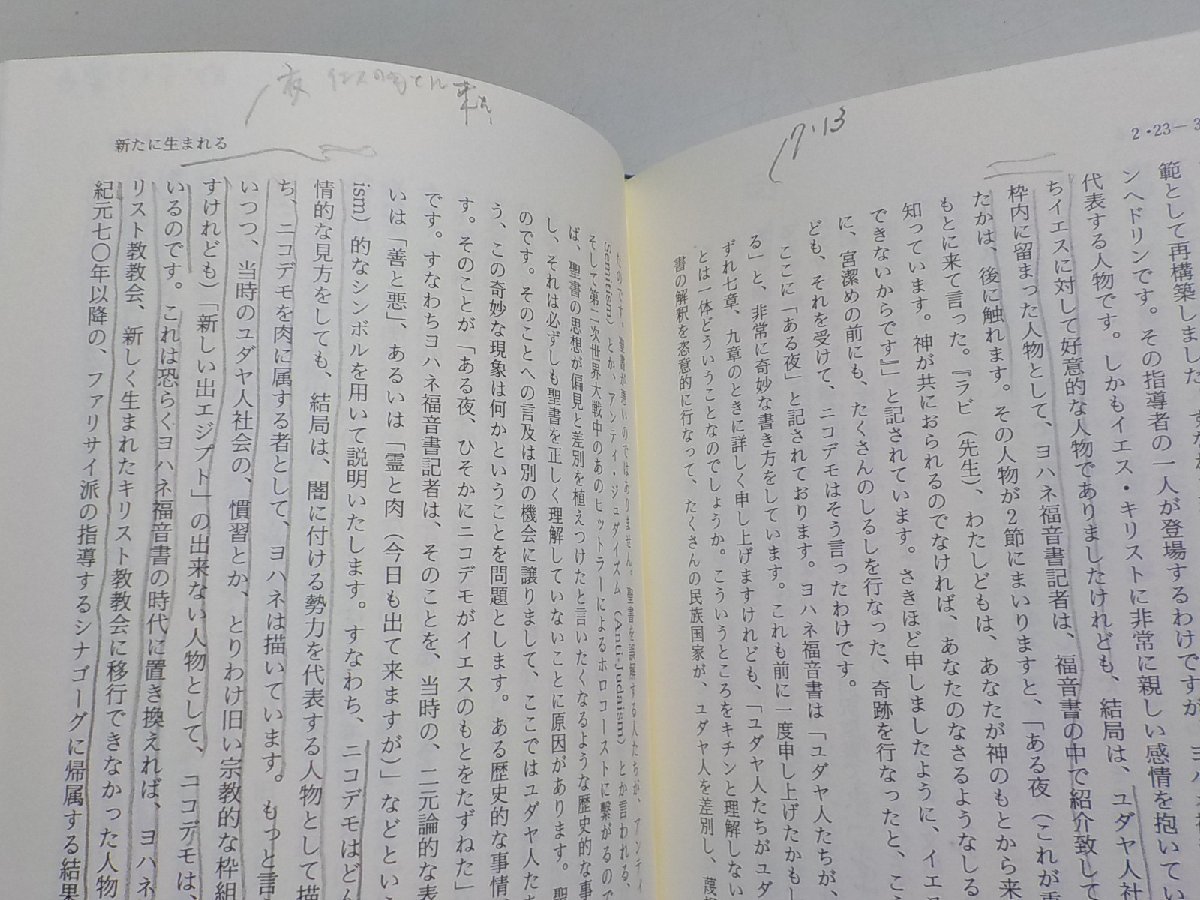 2・23－3
7・13
範として再構築しました
ンヘドリンです。その指導者の一人が登場するわけですが
代表する人物です。しかもイエス・キリストに非常に親しい感情を抱いてい
ちイエスに対して好意的な人物でありましたけれども、結局は、ユダヤ人社
枠内に留まった人物として、ヨハネ福音書記者は、福音書の中で紹介致して
たかは、後に触れます。その人物が2節にまいりますと、「ある夜（これが重
もとに来て言った。『ラビ（先生）、わたしどもは、あなたが神のもとから来
知っています。神が共におられるのでなければ、あなたのなさるようなしる
できないからです』」と記されています。さきほど申しましたように、イエ
に、宮潔めの前にも、たくさんのしるしを行なった、奇跡を行なったと、こ
ども、それを受けて、ニコデモはそう言ったわけです。
ここに「ある夜」と記されております。ヨハネ福音書は「ユダヤ人たちが、
る」と、非常に奇妙な書き方をしています。これも前に一度申し上げたかもし
ずれ七章、九章のときに詳しく申し上げますけれども、「ユダヤ人たちがユダ
とは一体どういうことなのでしょうか。こういうところをキチンと理解しない
書の解釈を恣意的に行なって、たくさんの民族国家が、ユダヤ人を差別し、
夜 イエスのもとに来た
新たに生まれる
とか、アンティ・ジュダイズム（Anti-Judaism）とか言われる、
そして第二次世界大戦中のあのヒットラーによるホロコーストに繋がるので
ば、聖書の思想が偏見と差別を植えつけたと言いたくなるような歴史的な事
し、それは必ずしも聖書を正しく理解していないことに原因があります。聖
のです。そのことへの言及は別の機会に譲りまして、ここではユダヤ人た
う、この奇妙な現象は何かということを問題とします。ある歴史的な事情
す。そのことが「ある夜、ひそかにニコデモがイエスのもとをたずねた」
です。すなわちヨハネ福音書記者は、そのことを、当時の、二元論的な表
いは「善と悪」、あるいは「霊と肉（今日も出て来ますが）」などとい
ism）的なシンボルを用いて説明いたします。すなわち、ニコデモはどん
情的な見方をしても、結局は、闇に付ける勢力を代表する人物として描
ち、ニコデモを肉に属する者として、ヨハネは描いています。もっと言
いつつ、当時のユダヤ人社会の、慣習とか、とりわけ旧い宗教的な枠組
すけれども）「新しい出エジプト」の出来ない人物として、ニコデモは、
いるのです。これは恐らくヨハネ福音書の時代に置き換えれば、ヨハネ
リスト教教会、新しく生まれたキリスト教教会に移行できなかった人物
紀元七〇年以降の、ファリサイ派の指導するシナゴーグに帰属する結果